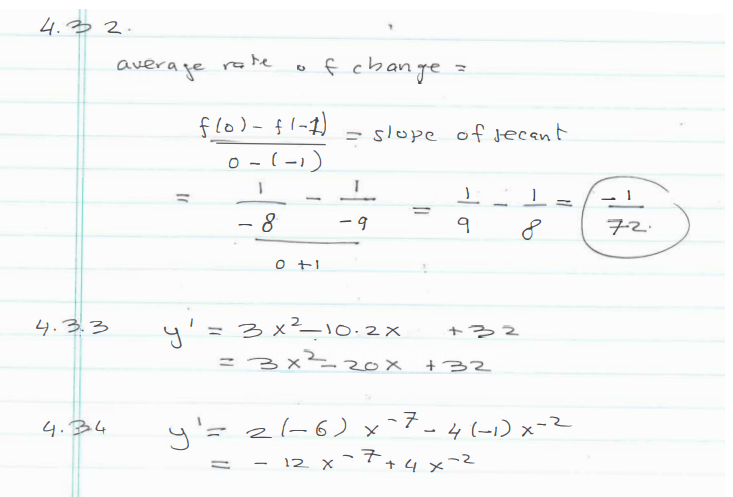 4.3 2.
average rate of change =
f(0) - f(-1) / 0 - (-1) = slope of secant
= (1/-8 - 1/-9) / 0+1 = 1/9 - 1/8 = -1/72.
4.3.3 y' = 3x² - 10·2x + 32
= 3x² - 20x + 32
4.34 y' = 2(-6)x⁻⁷ - 4(-1)x⁻²
= -12x⁻⁷ + 4x⁻²